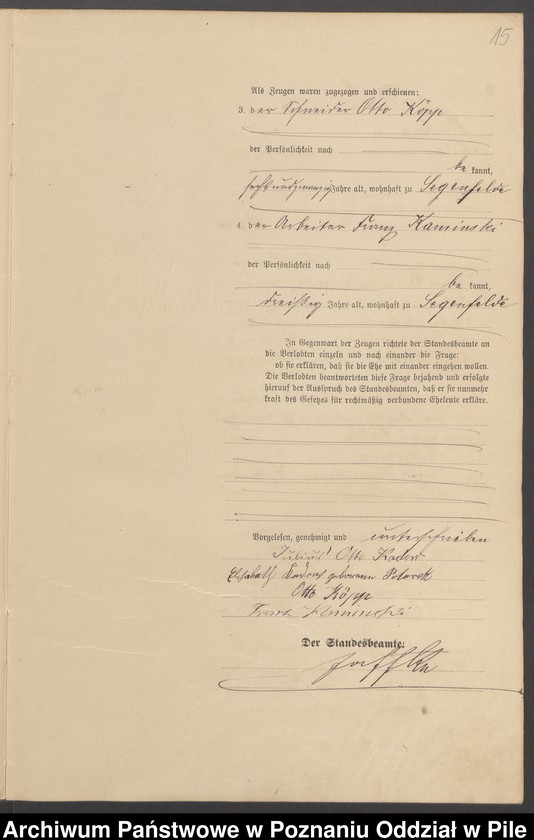 15
Als Zeugen waren zugezogen und erschienen:
3. der Schneider Otto Köpp
der Persönlichkeit nach
be kannt,
sechsundzwanzig Jahre alt, wohnhaft zu Segenfelde
4. der Arbeiter Franz Kaminski
der Persönlichkeit nach
be kannt,
dreißig Jahre alt, wohnhaft zu Segenfelde
In Gegenwart der Zeugen richtete der Standesbeamte an
die Verlobten einzeln und nach einander die Frage:
ob sie erklären, daß sie die Ehe mit einander eingehen wollen.
Die Verlobten beantworteten diese Frage bejahend und erfolgte
hierauf der Ausspruch des Standesbeamten, daß er sie nunmehr
kraft des Gesetzes für rechtmäßig verbundene Eheleute erkläre.
Vorgelesen, genehmigt und unterschrieben
Julius Otto Kadow
Elisabeth Kadow geborene
Otto Köpp
Franz Kaminski
Der Standesbeamte:
Archiwum Państwowe w Poznaniu Oddział w Pile